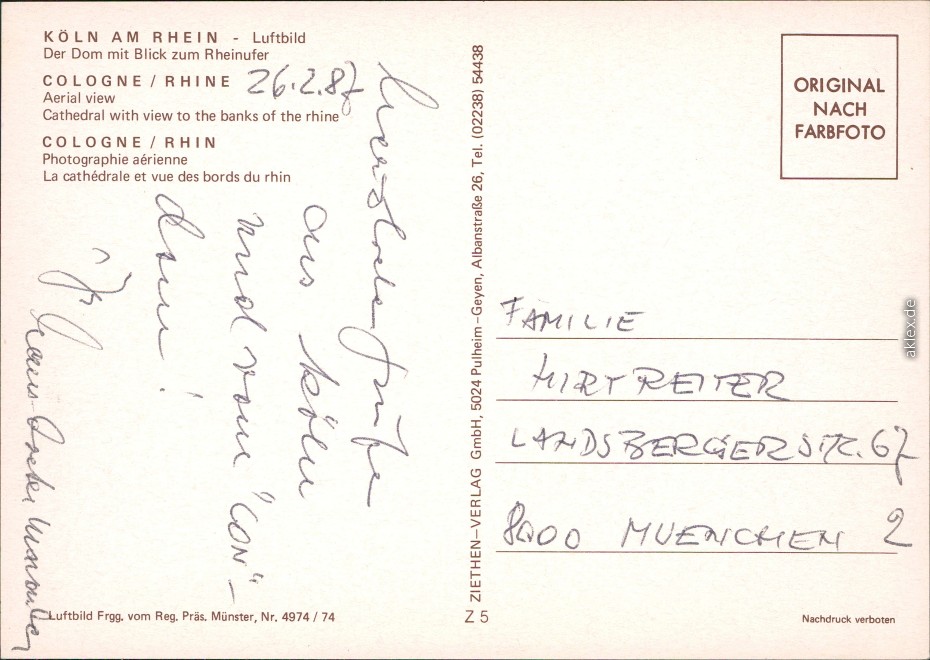 KÖLN AM RHEIN - Luftbild
Der Dom mit Blick zum Rheinufer
COLOGNE / RHINE
Aerial view
Cathedral with view to the banks of the rhine
COLOGNE / RHIN
Photographie aérienne
La cathédrale et vue des bords du rhin
26.2.87
Grüße
aus Köln
und vom "CON"-
Ihr
Hans-
Luftbild Frgg. vom Reg. Präs. Münster, Nr. 4974 / 74
ZIETHEN-VERLAG GmbH, 5024 Pulheim-Geyen, Albanstraße 26, Tel. (02238) 54438
Z 5
ORIGINAL
NACH
FARBFOTO
FAMILIE
HIRTREITER
LANDSBERGERSTR. 67
8000 MUENCHEN 2
Nachdruck verboten
aklex.de